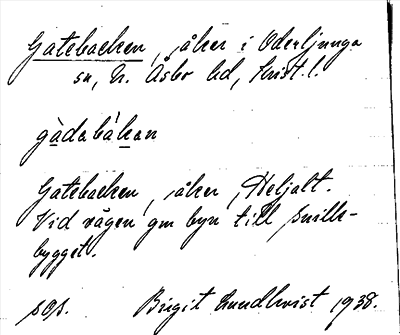 Gatebacken, åker i Oderljunga
sn, N. Åsbo hd, Krist. l.
gàdabákan
Gatebacken, åker, Heljalt.
Vid vägen gm byn till Snille-
bygget.
sOs. Birgit Lundkvist 1938.